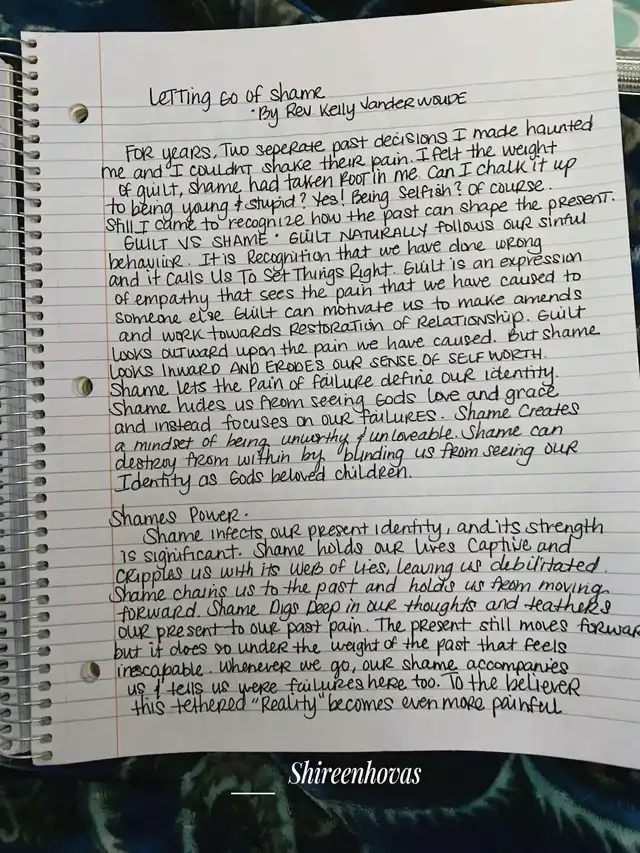 Letting Go of Shame
·By Rev Kelly VanderWoude
For years, Two seperate past decisions I made haunted
me and I couldnt shake their pain. I felt the weight
of guilt, shame had taken root in me. Can I chalk it up
to being young & stupid? Yes! Being selfish? Of course.
Still I came to recognize how the past can shape the present.
Guilt vs Shame · Guilt naturally follows our sinful
behavior. It is Recognition that we have done wrong
and it calls us to set things right. Guilt is an expression
of empathy that sees the pain that we have caused to
someone else Guilt can motivate us to make amends
and work towards restoration of relationship. Guilt
looks outward upon the pain we have caused. But shame
looks inward and erodes our sense of self worth.
Shame lets the pain of failure define our identity.
Shame hides us from seeing Gods love and grace
and instead focuses on our failures. Shame creates
a mindset of being unworthy & unloveable. Shame can
destroy from within by blinding us from seeing our
Identity as Gods beloved children.
Shames Power.
Shame infects our present identity, and its strength
is significant. Shame holds our lives captive and
cripples us with its web of lies, leaving us debilitated.
Shame chains us to the past and holds us from moving
forward. Shame Digs Deep in our thoughts and teathers
our present to our past pain. The present still moves forwar
but it does so under the weight of the past that feels
inescapable. Whenever we go, our shame accompanies
us & tells us were failures here too. To the believer
this tethered "Reality" becomes even more painful
Shireenhovas